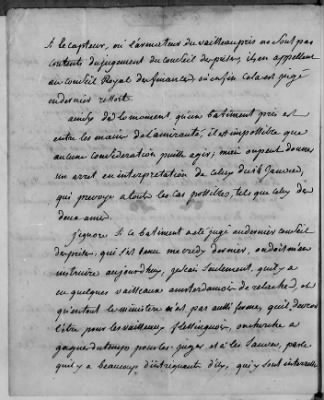 si le capteur, ou l'armateur du vaisseau pris ne sont pas
contents du jugement du conseil des prises, ils en appellent
au conseil Royal des finances où enfin cela est jugé
en dernier ressort.
ainsy dès le moment, qu'un batiment pris est
entre les mains de l'amirauté, il est impossible que
aucune consideration puisse agir; mais on peut donner
un arret en interpretation de celuy du
qui prevoye a tous les cas possibles, tel que celuy de
deux amis.
j'ignore si ce batiment a été jugé au dernier conseil
des prises, qui s'est tenu mercredy dernier, on doit m'en
instruire aujourd'huy, je sais seulement, qu'il y a
eu quelques vaisseaux amsterdamois de relachés, et
qu'autant le ministere n'est pas aussi ferme, qu'il devroit
l'être pour les vaisseaux flessinguois, on cherche a
gagner du tems pour les juger et a les sauver, parce
qu'il y a beaucoup d'intriguants d'icy, qui y sont interressés